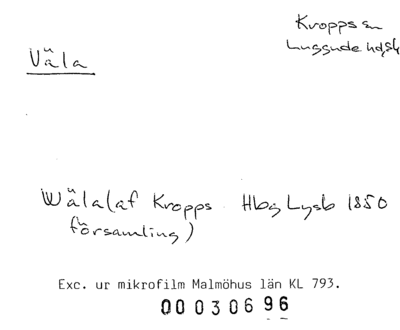 Kropps sn
Luggude hd, Sk
Väla
Wäla (af Kropps Hbg Lysb 1850
församling)
Exc. ur mikrofilm Malmöhus län KL 793.
00 030696